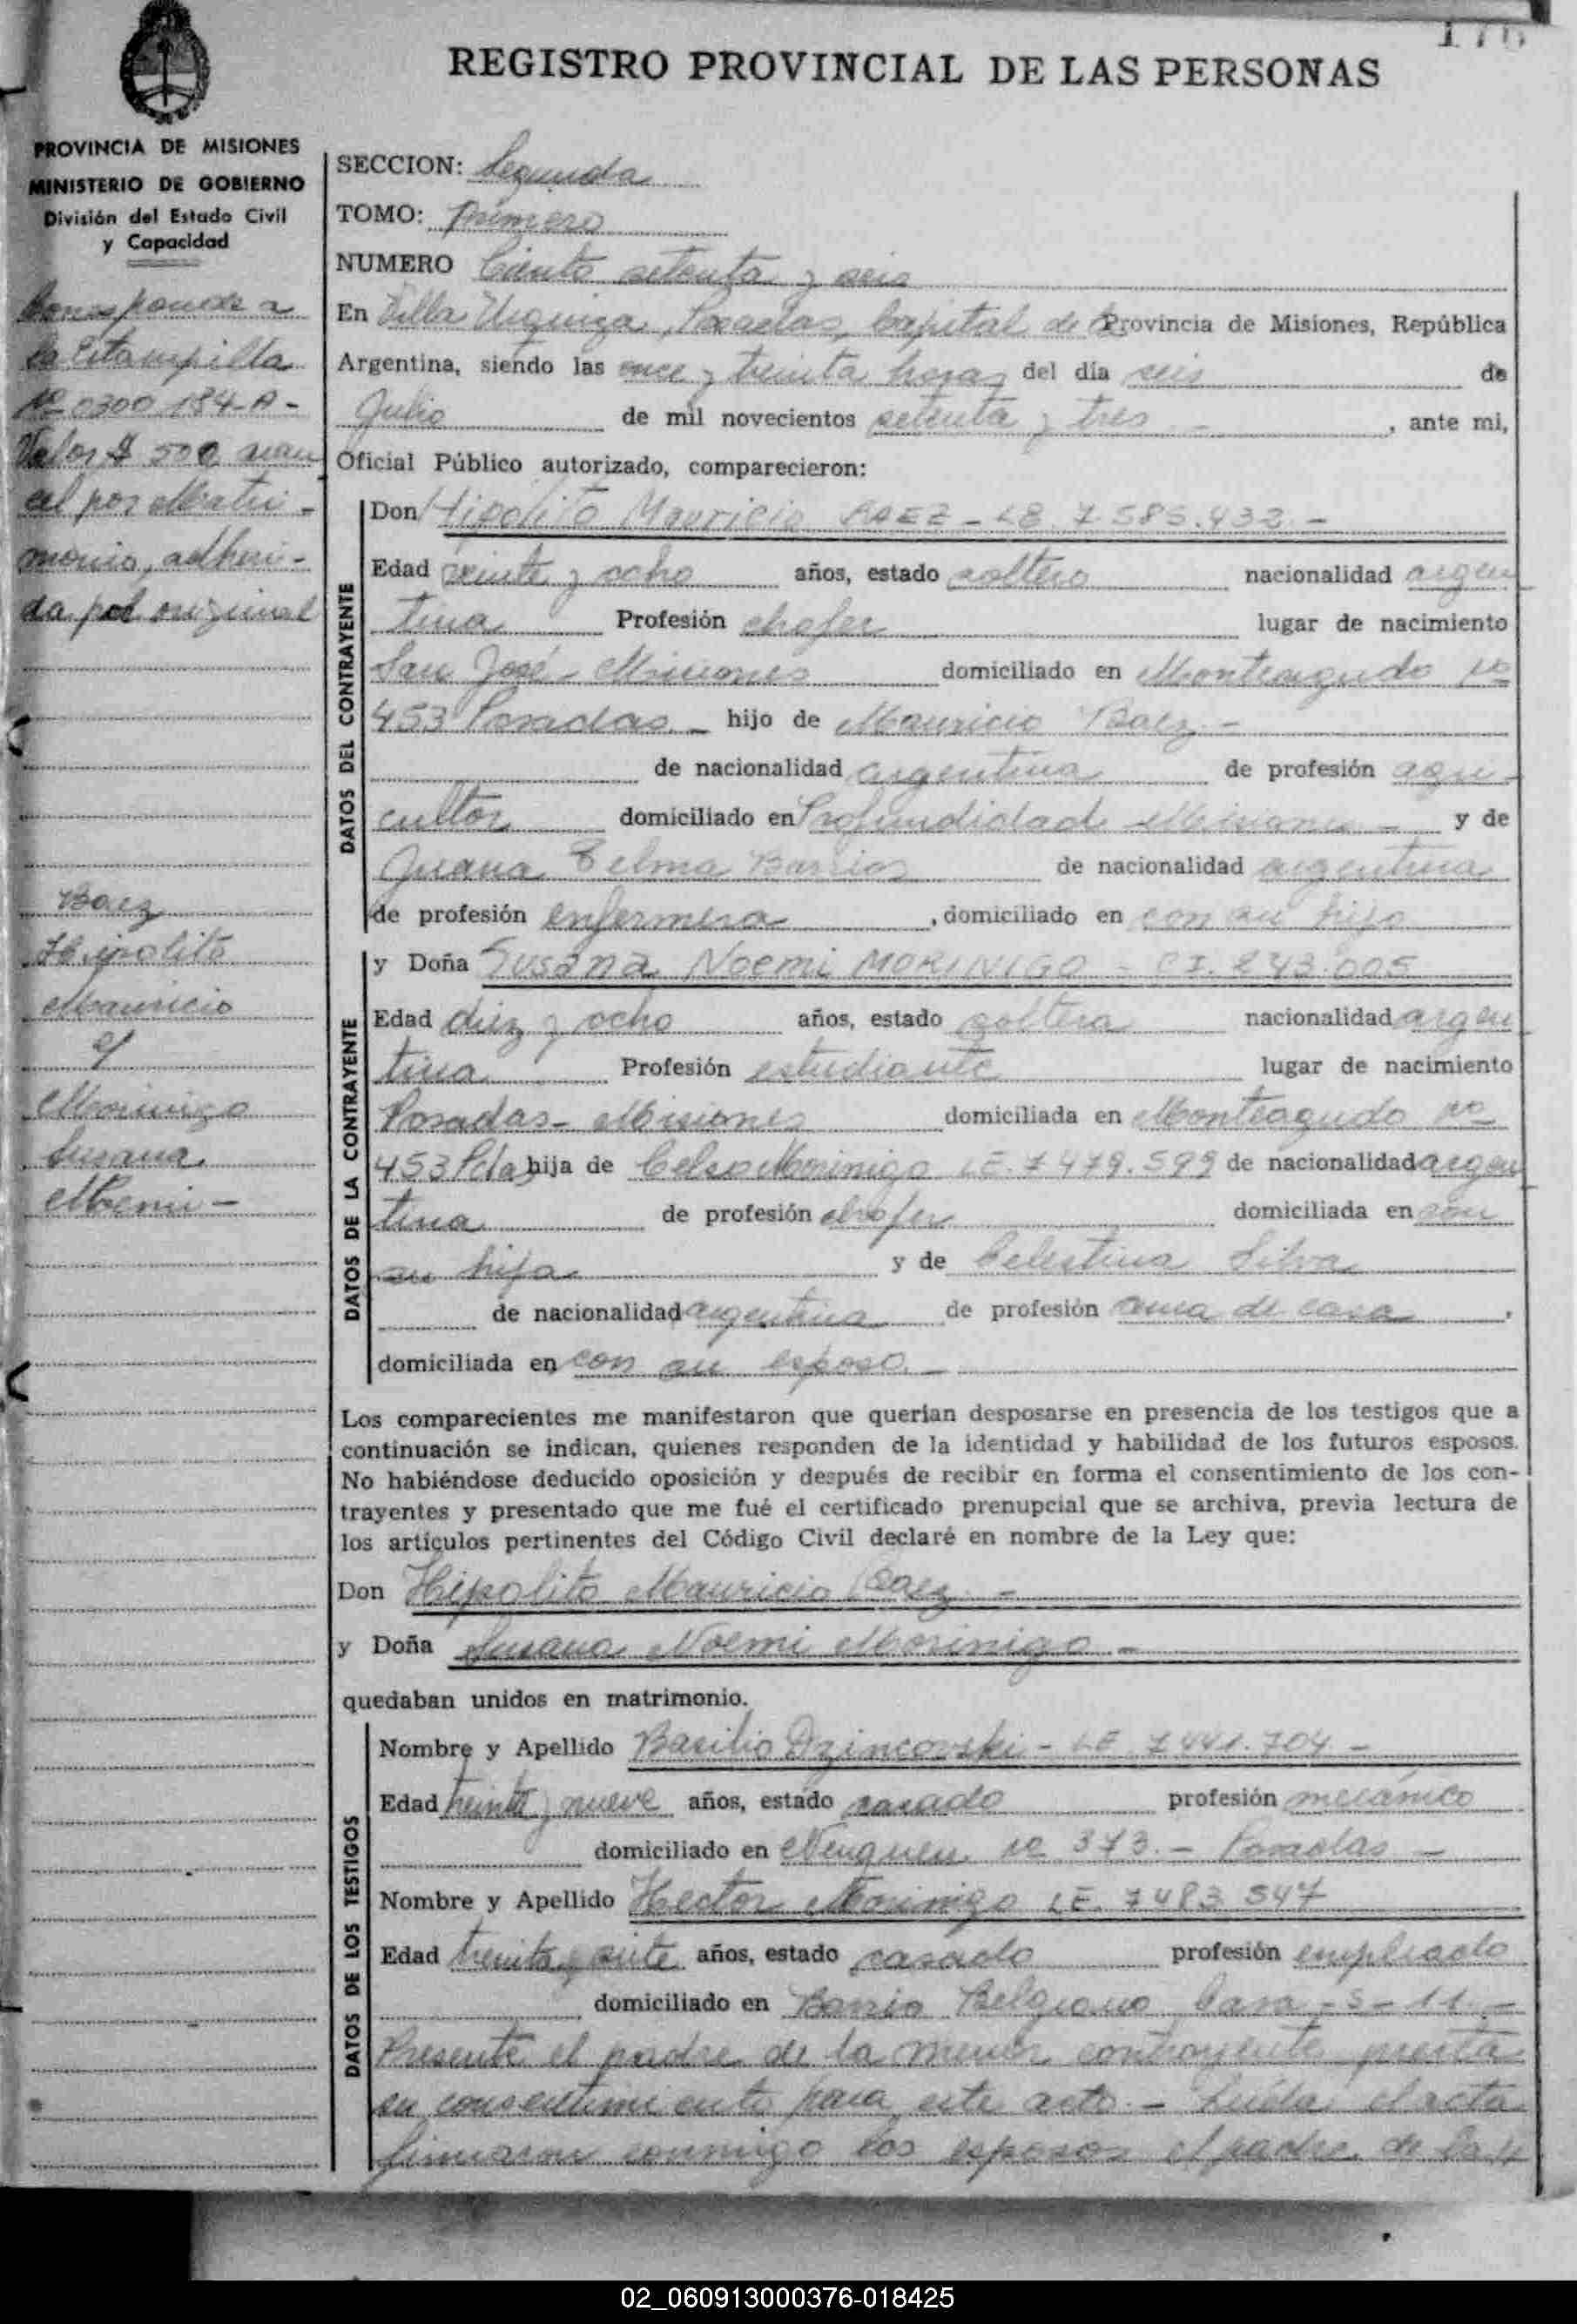 176
REGISTRO PROVINCIAL DE LAS PERSONAS
PROVINCIA DE MISIONES
MINISTERIO DE GOBIERNO
División del Estado Civil
y Capacidad
Corresponde a
la Estampilla
Nº 0300184-A-
Valor $ 500 aran
cel por Matri-
monio, adheri-
da al original
Baez
Hipolito
Mauricio
y
Morinigo
Susana
Noemi-
SECCION: Segunda
TOMO: Primero
NUMERO Ciento setenta y seis
En Villa Urquiza, Posadas, Capital de la Provincia de Misiones, República
Argentina, siendo las once y treinta horas del día seis de
Julio de mil novecientos setenta y tres - , ante mi,
Oficial Público autorizado, comparecieron:
DATOS DEL CONTRAYENTE
Don Hipolito Mauricio BAEZ - LE. 7.585.432 -
Edad veinte y ocho años, estado soltero nacionalidad argen
tina Profesión chofer lugar de nacimiento
San José - Misiones domiciliado en Monteagudo Nº
453 Posadas. - hijo de Mauricio Baez -
de nacionalidad argentina de profesión agri-
cultor domiciliado en Profundidad Misiones - y de
Juana Telma Barrios de nacionalidad argentina
de profesión enfermera , domiciliado en con su hijo
DATOS DE LA CONTRAYENTE
y Doña Susana Noemi MORINIGO - CI. 243.005
Edad diez y ocho años, estado soltera nacionalidad argen
tina Profesión estudiante lugar de nacimiento
Posadas - Misiones domiciliada en Monteagudo Nº
453 Pdas hija de Celso Morinigo LE. 7.479.599 de nacionalidad argen
tina de profesión chofer domiciliada en con
su hija y de Celestina Silva
de nacionalidad argentina de profesión ama de casa ,
domiciliada en con su esposo. -
Los comparecientes me manifestaron que querían desposarse en presencia de los testigos que a
continuación se indican, quienes responden de la identidad y habilidad de los futuros esposos.
No habiéndose deducido oposición y después de recibir en forma el consentimiento de los con-
trayentes y presentado que me fué el certificado prenupcial que se archiva, previa lectura de
los artículos pertinentes del Código Civil declaré en nombre de la Ley que:
Don Hipolito Mauricio Baez -
y Doña Susana Noemi Morinigo -
quedaban unidos en matrimonio.
DATOS DE LOS TESTIGOS
Nombre y Apellido Basilio Dzincovski - LE 7.441.704 -
Edad treinta y nueve años, estado casado profesión mecánico
domiciliado en Neuquen Nº 373. - Posadas -
Nombre y Apellido Hector Morinigo LE. 7483 547
Edad treinta y siete años, estado casado profesión empleado
domiciliado en Barrio Belgrano Casa - S - 11 -
Presente el padre de la menor contrayente presta
su consentimiento para este acto. - Leída el acta
firmaron conmigo los esposos el padre de la
02_060913000376-018425